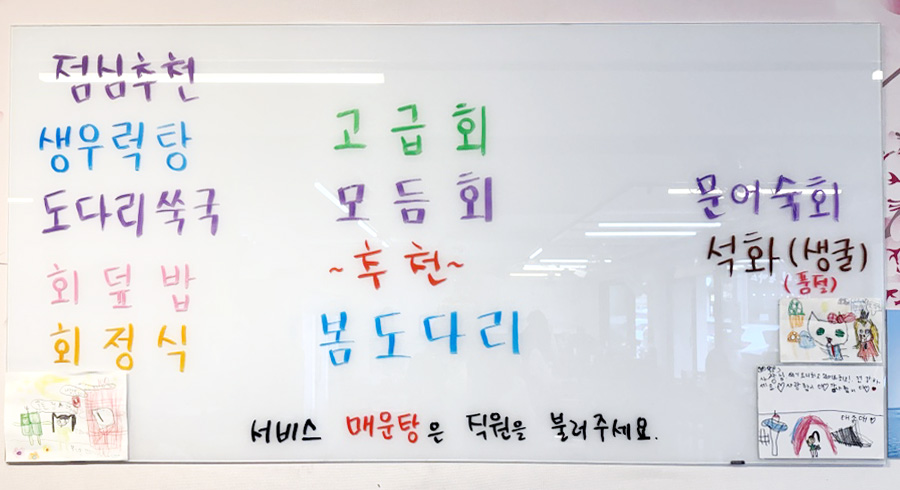 점심추천
생우럭탕
도다리쑥국
회덮밥
회정식
고급회
모듬회
~추천~
봄도다리
문어숙회
석화(생굴)
(품절)
서비스 매운탕은 직원을 불러주세요.